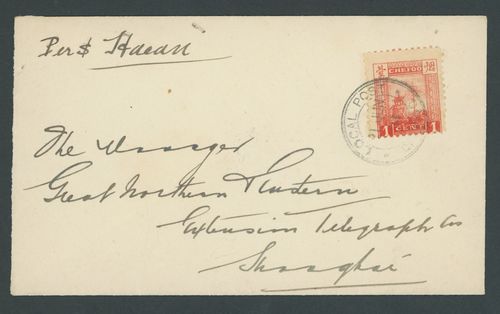 Per $ Haean
烟 CHEFOO 台
1 CENT 1
LOCAL POST
The Manager
Great Northern & Eastern
Extension Telegraph Cos
Shanghai